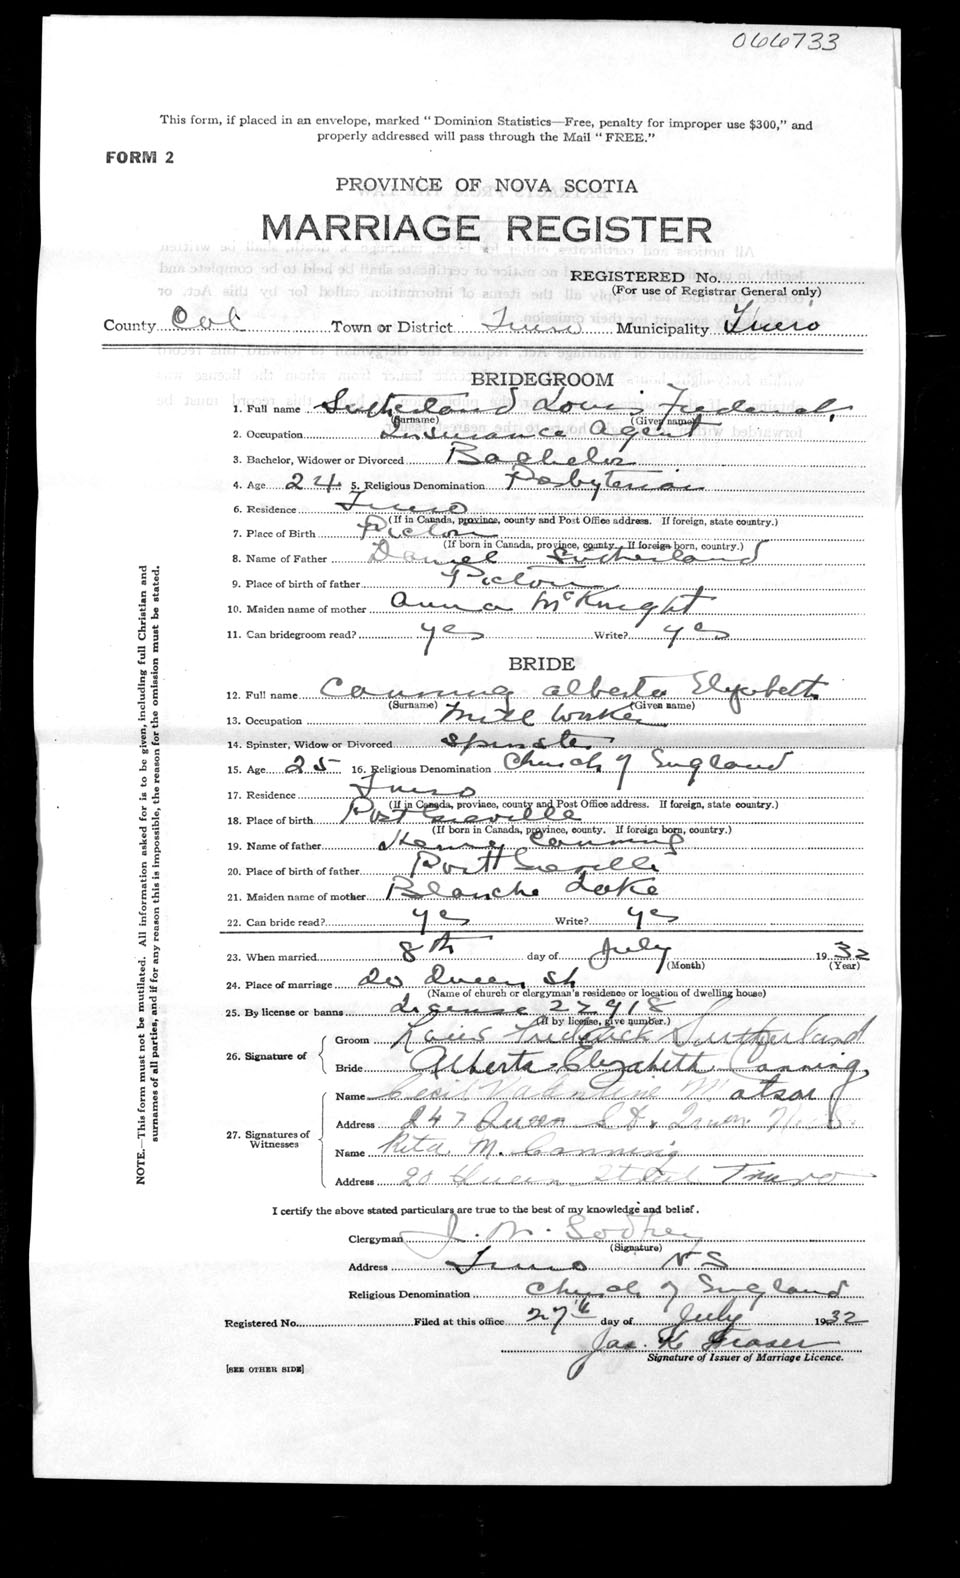 066733
This form, if placed in an envelope, marked "Dominion Statistics—Free, penalty for improper use $300," and
properly addressed will pass through the Mail "FREE."
FORM 2
PROVINCE OF NOVA SCOTIA
MARRIAGE REGISTER
REGISTERED No.
(For use of Registrar General only)
County Col Town or District Truro Municipality Truro
BRIDEGROOM
1. Full name Sutherland Louis Frederick
(Surname) (Given name)
2. Occupation Insurance Agent
3. Bachelor, Widower or Divorced Bachelor
4. Age 24 5. Religious Denomination Presbyterian
6. Residence Truro
(If in Canada, province, county and Post Office address. If foreign, state country.)
7. Place of Birth Pictou
(If born in Canada, province, county. If foreign born, country.)
8. Name of Father Daniel Sutherland
9. Place of birth of father Pictou
10. Maiden name of mother Anna McKnight
11. Can bridegroom read? yes Write? yes
BRIDE
12. Full name Canning Alberta Elizabeth
(Surname) (Given name)
13. Occupation Mill Worker
14. Spinster, Widow or Divorced Spinster
15. Age 25 16. Religious Denomination Church of England
17. Residence Truro
(If in Canada, province, county and Post Office address. If foreign, state country.)
18. Place of birth Port Greville
(If born in Canada, province, county. If foreign born, country.)
19. Name of father Henry Canning
20. Place of birth of father Port Greville
21. Maiden name of mother Blanche Lake
22. Can bride read? yes Write? yes
23. When married 8th day of July 1932
(Month) (Year)
24. Place of marriage 20 Queen St.
(Name of church or clergyman's residence or location of dwelling house)
25. By license or banns License 22918
(If by license, give number.)
26. Signature of
Groom Louis Frederick Sutherland
Bride Alberta Elizabeth Canning
27. Signatures of Witnesses
Name Cecil Valentine
Address 247 Queen St. Truro N.S.
Name Rita M. Canning
Address 20 Queen Street Truro
I certify the above stated particulars are true to the best of my knowledge and belief.
Clergyman J. M. Godfrey
(Signature)
Address Truro N S
Religious Denomination Church of England
Registered No. Filed at this office 27th day of July 1932
Jas. K Fraser
Signature of Issuer of Marriage Licence.
[SEE OTHER SIDE]
NOTE.—This form must not be mutilated. All information asked for is to be given, including full Christian and
surnames of all parties, and if for any reason this is impossible, the reason for the omission must be stated.